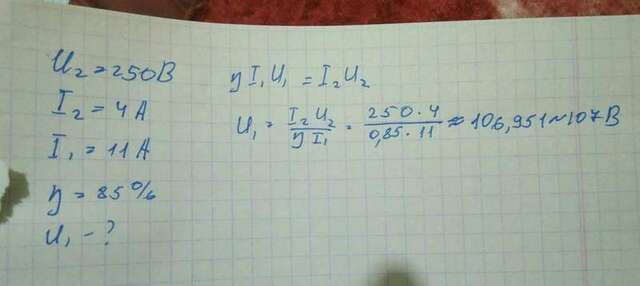 U₂ = 250 В
I₂ = 4 А
I₁ = 11 А
η = 85 %
U₁ - ?
η I₁ U₁ = I₂ U₂
U₁ = I₂ U₂ / η I₁ = 250 · 4 / 0,85 · 11 ≈ 106,951 ~ 107 В